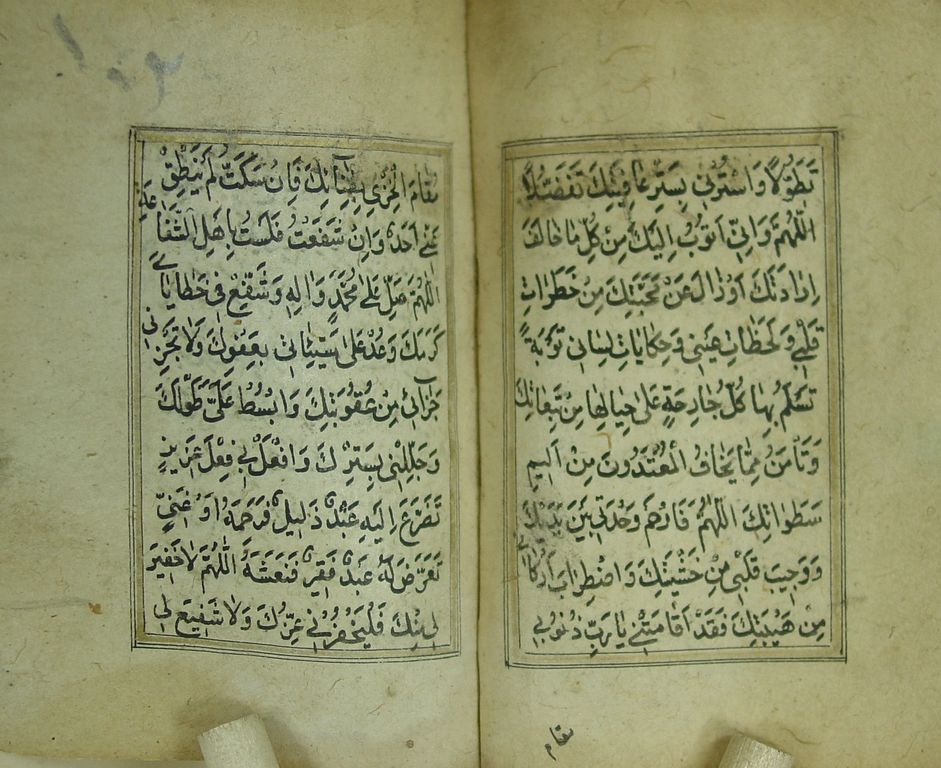 تَطَوُّلًا وَاسْتُرْنِي بِسِتْرِ عَافِيَتِكَ تَفَضُّلًا
اَللّٰهُمَّ وَاِنِّي اَتُوبُ اِلَيْكَ مِنْ كُلِّ مَا خَالَفَ
اِرَادَتَكَ اَوْ زَالَ عَنْ مَحَبَّتِكَ مِنْ خَطَرَاتِ
قَلْبِي وَلَحَظَاتِ عَيْنِي وَحِكَايَاتِ لِسَانِي تَوْبَةً
تَسْلَمُ بِهَا كُلُّ جَارِحَةٍ عَلَى حِيَالِهَا مِنْ تَبِعَاتِكَ
وَتَأْمَنُ مِمَّا يَخَافُ الْمُعْتَدُونَ مِنْ اَلِيمِ
سَطَوَاتِكَ اَللّٰهُمَّ فَارْحَمْ وَحْدَتِي بَيْنَ يَدَيْكَ
وَوَجِيبَ قَلْبِي مِنْ خَشْيَتِكَ وَاضْطِرَابَ اَرْكَانِي
مِنْ هَيْبَتِكَ فَقَدْ اَقَامَتْنِي يَا رَبِّ ذُنُوبِي
مقام
مَقَامَ الْخِزْيِ بِفِنَائِكَ فَاِنْ سَكَتُّ لَمْ يَنْطِقْ
عَنِّي اَحَدٌ وَاِنْ شَفَعْتُ فَلَسْتُ بِاَهْلِ الشَّفَاعَةِ
اَللّٰهُمَّ صَلِّ عَلٰى مُحَمَّدٍ وَاٰلِهِ وَشَفِّعْ فِي خَطَايَايَ
كَرَمَكَ وَعُدْ عَلٰى سَيِّئَاتِي بِعَفْوِكَ وَلَا تَجْزِنِي
جَزَائِي مِنْ عُقُوبَتِكَ وَابْسُطْ عَلَيَّ طَوْلَكَ
وَجَلِّلْنِي بِسِتْرِكَ وَافْعَلْ بِي فِعْلَ عَزِيزٍ
تَضَرَّعَ اِلَيْهِ عَبْدٌ ذَلِيلٌ فَرَحِمَهُ اَوْ غَنِيٍّ
تَعَرَّضَ لَهُ عَبْدٌ فَقِيرٌ فَنَعَشَهُ اَللّٰهُمَّ لَا خَفِيرَ
لِي مِنْكَ فَلْيَخْفُرْنِي عِزُّكَ وَلَا شَفِيعَ لِي